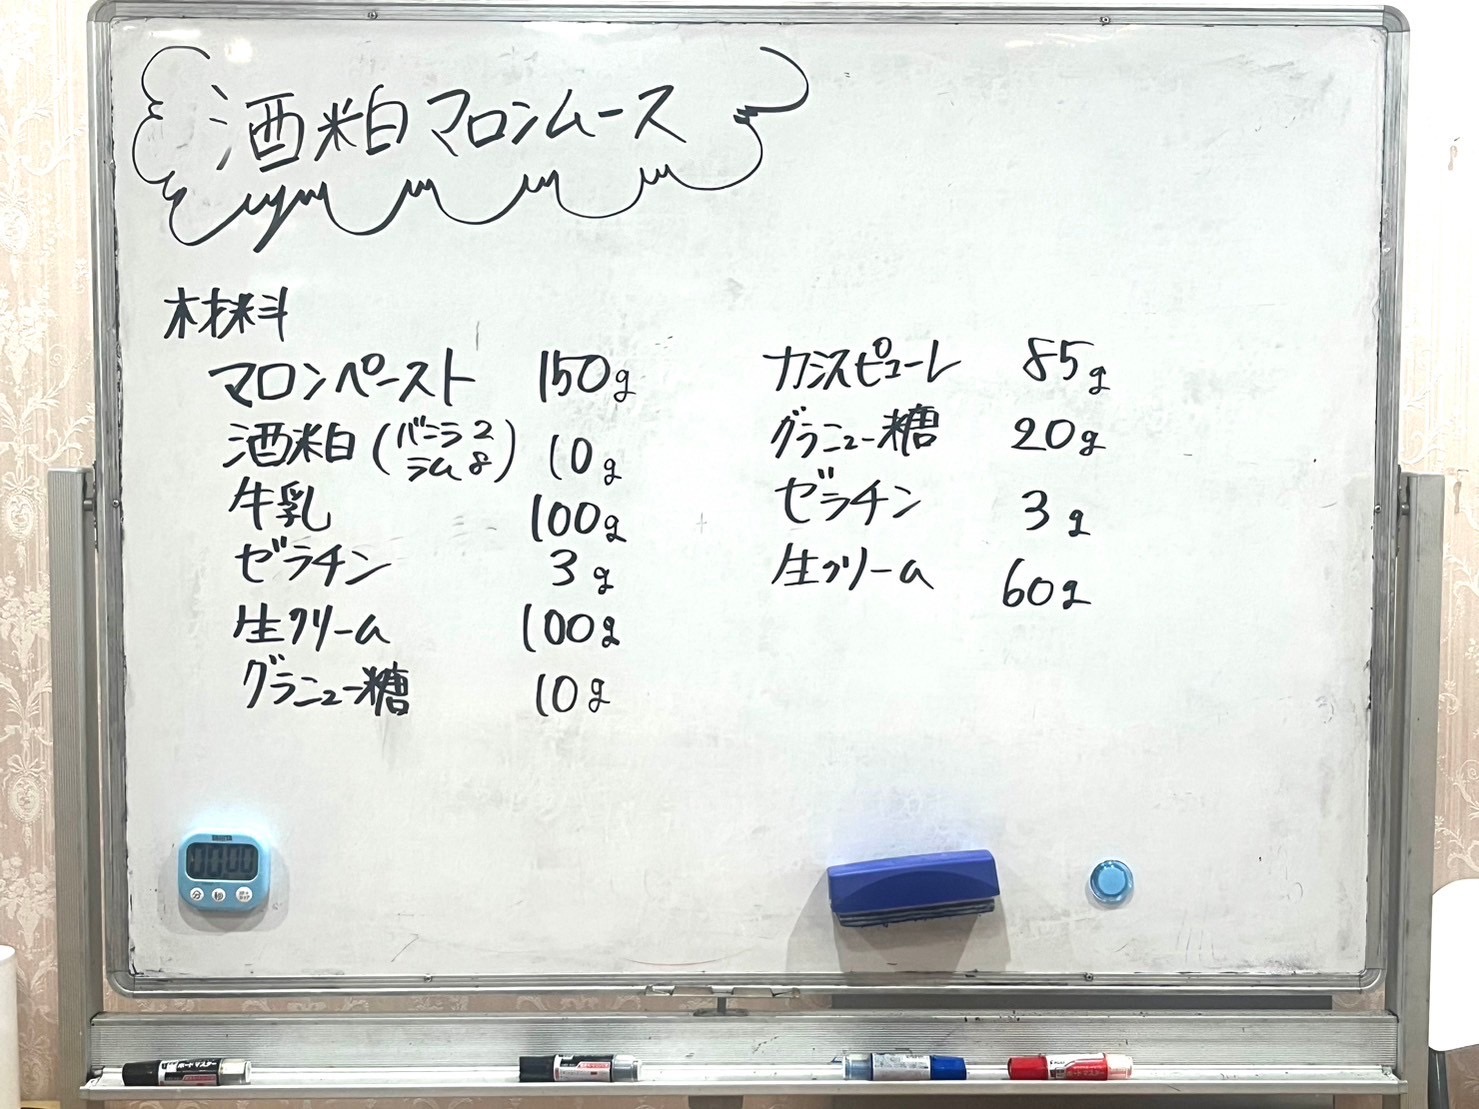 酒粕マロンムース
材料
マロンペースト 150g
酒粕(バニラ2 ラム8) 10g
牛乳 100g
ゼラチン 3g
生クリーム 100g
グラニュー糖 10g
カシスピューレ 85g
グラニュー糖 20g
ゼラチン 3g
生クリーム 60g
分 秒
ボードマスター